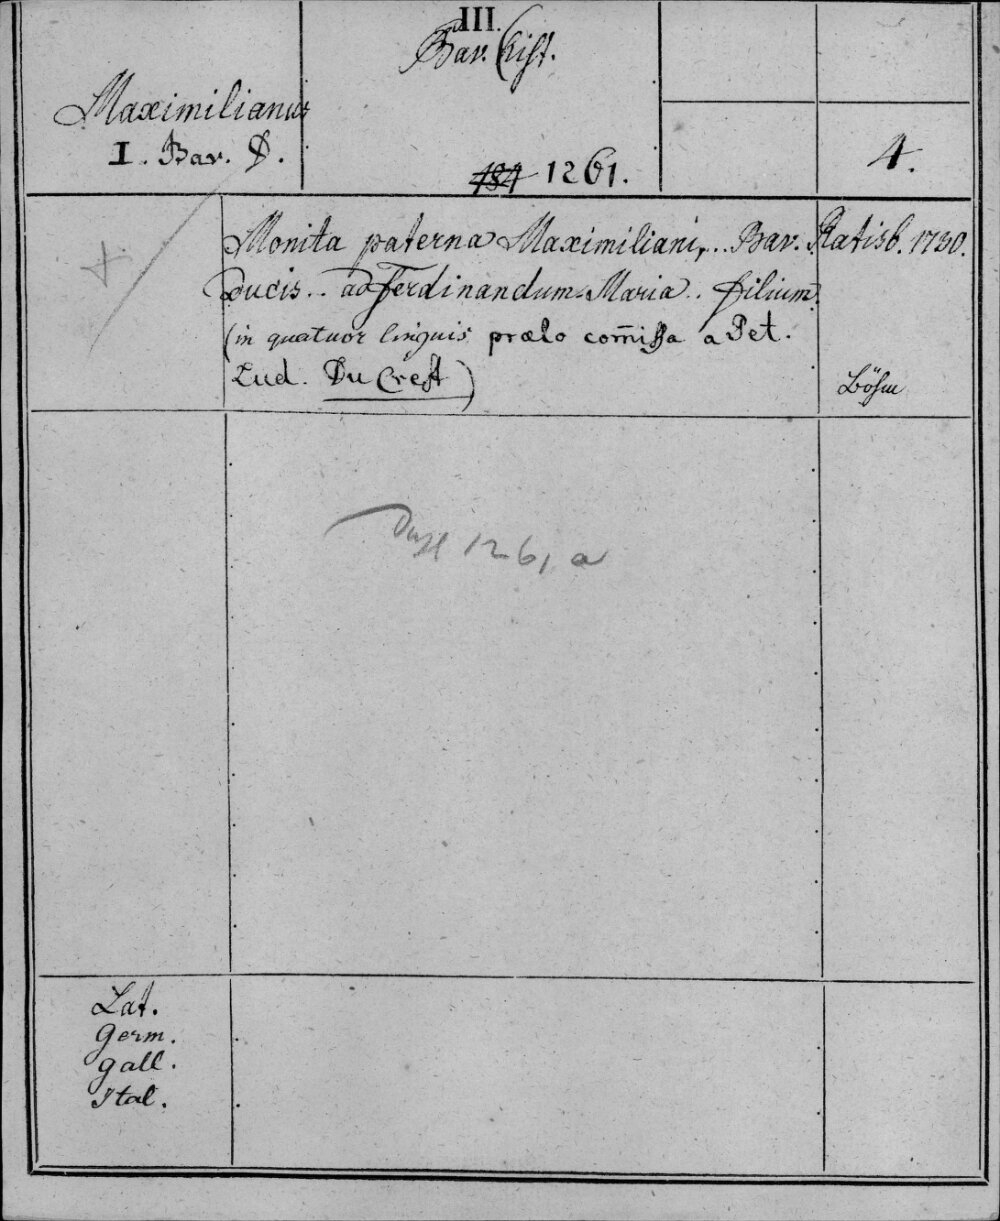 III.
Bav. Hist.
Maximilianus
I. Bav. D.
1261.
4.
Monita paterna Maximiliani,.. Bav.
Ducis .. ad Ferdinandum Maria .. filium.
(in quatuor linguis prælo com̄issa a Pet.
Lud. Du Crest)
Ratisb. 1730.
Böhm
Dupl 1261, a
Lat.
Germ.
gall.
Ital.